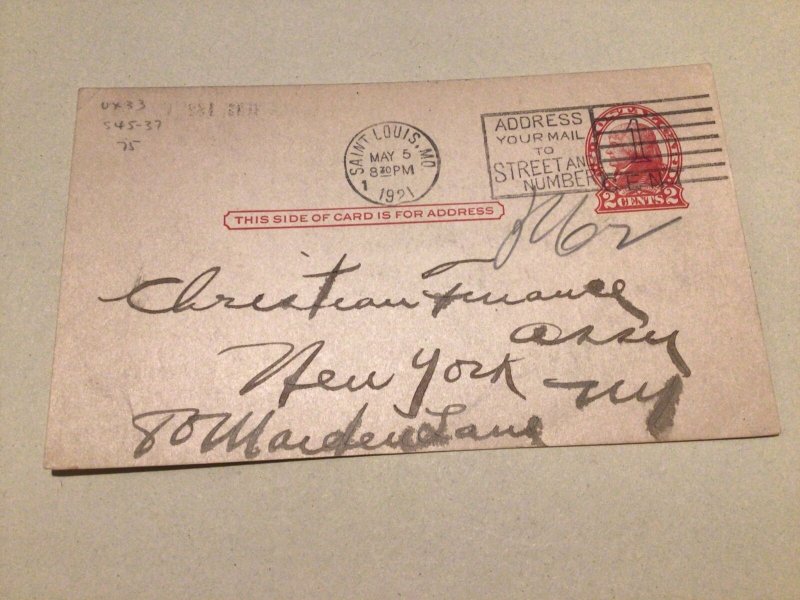 UX33
S45-37
75
SAINT LOUIS, MO.
MAY 5
8 30 PM
1
1921
ADDRESS
YOUR MAIL
TO
STREET AND
NUMBER
1
CENT
2 CENTS 2
THIS SIDE OF CARD IS FOR ADDRESS
Christian Finance
Assn
New York NY
80 Maiden Lane